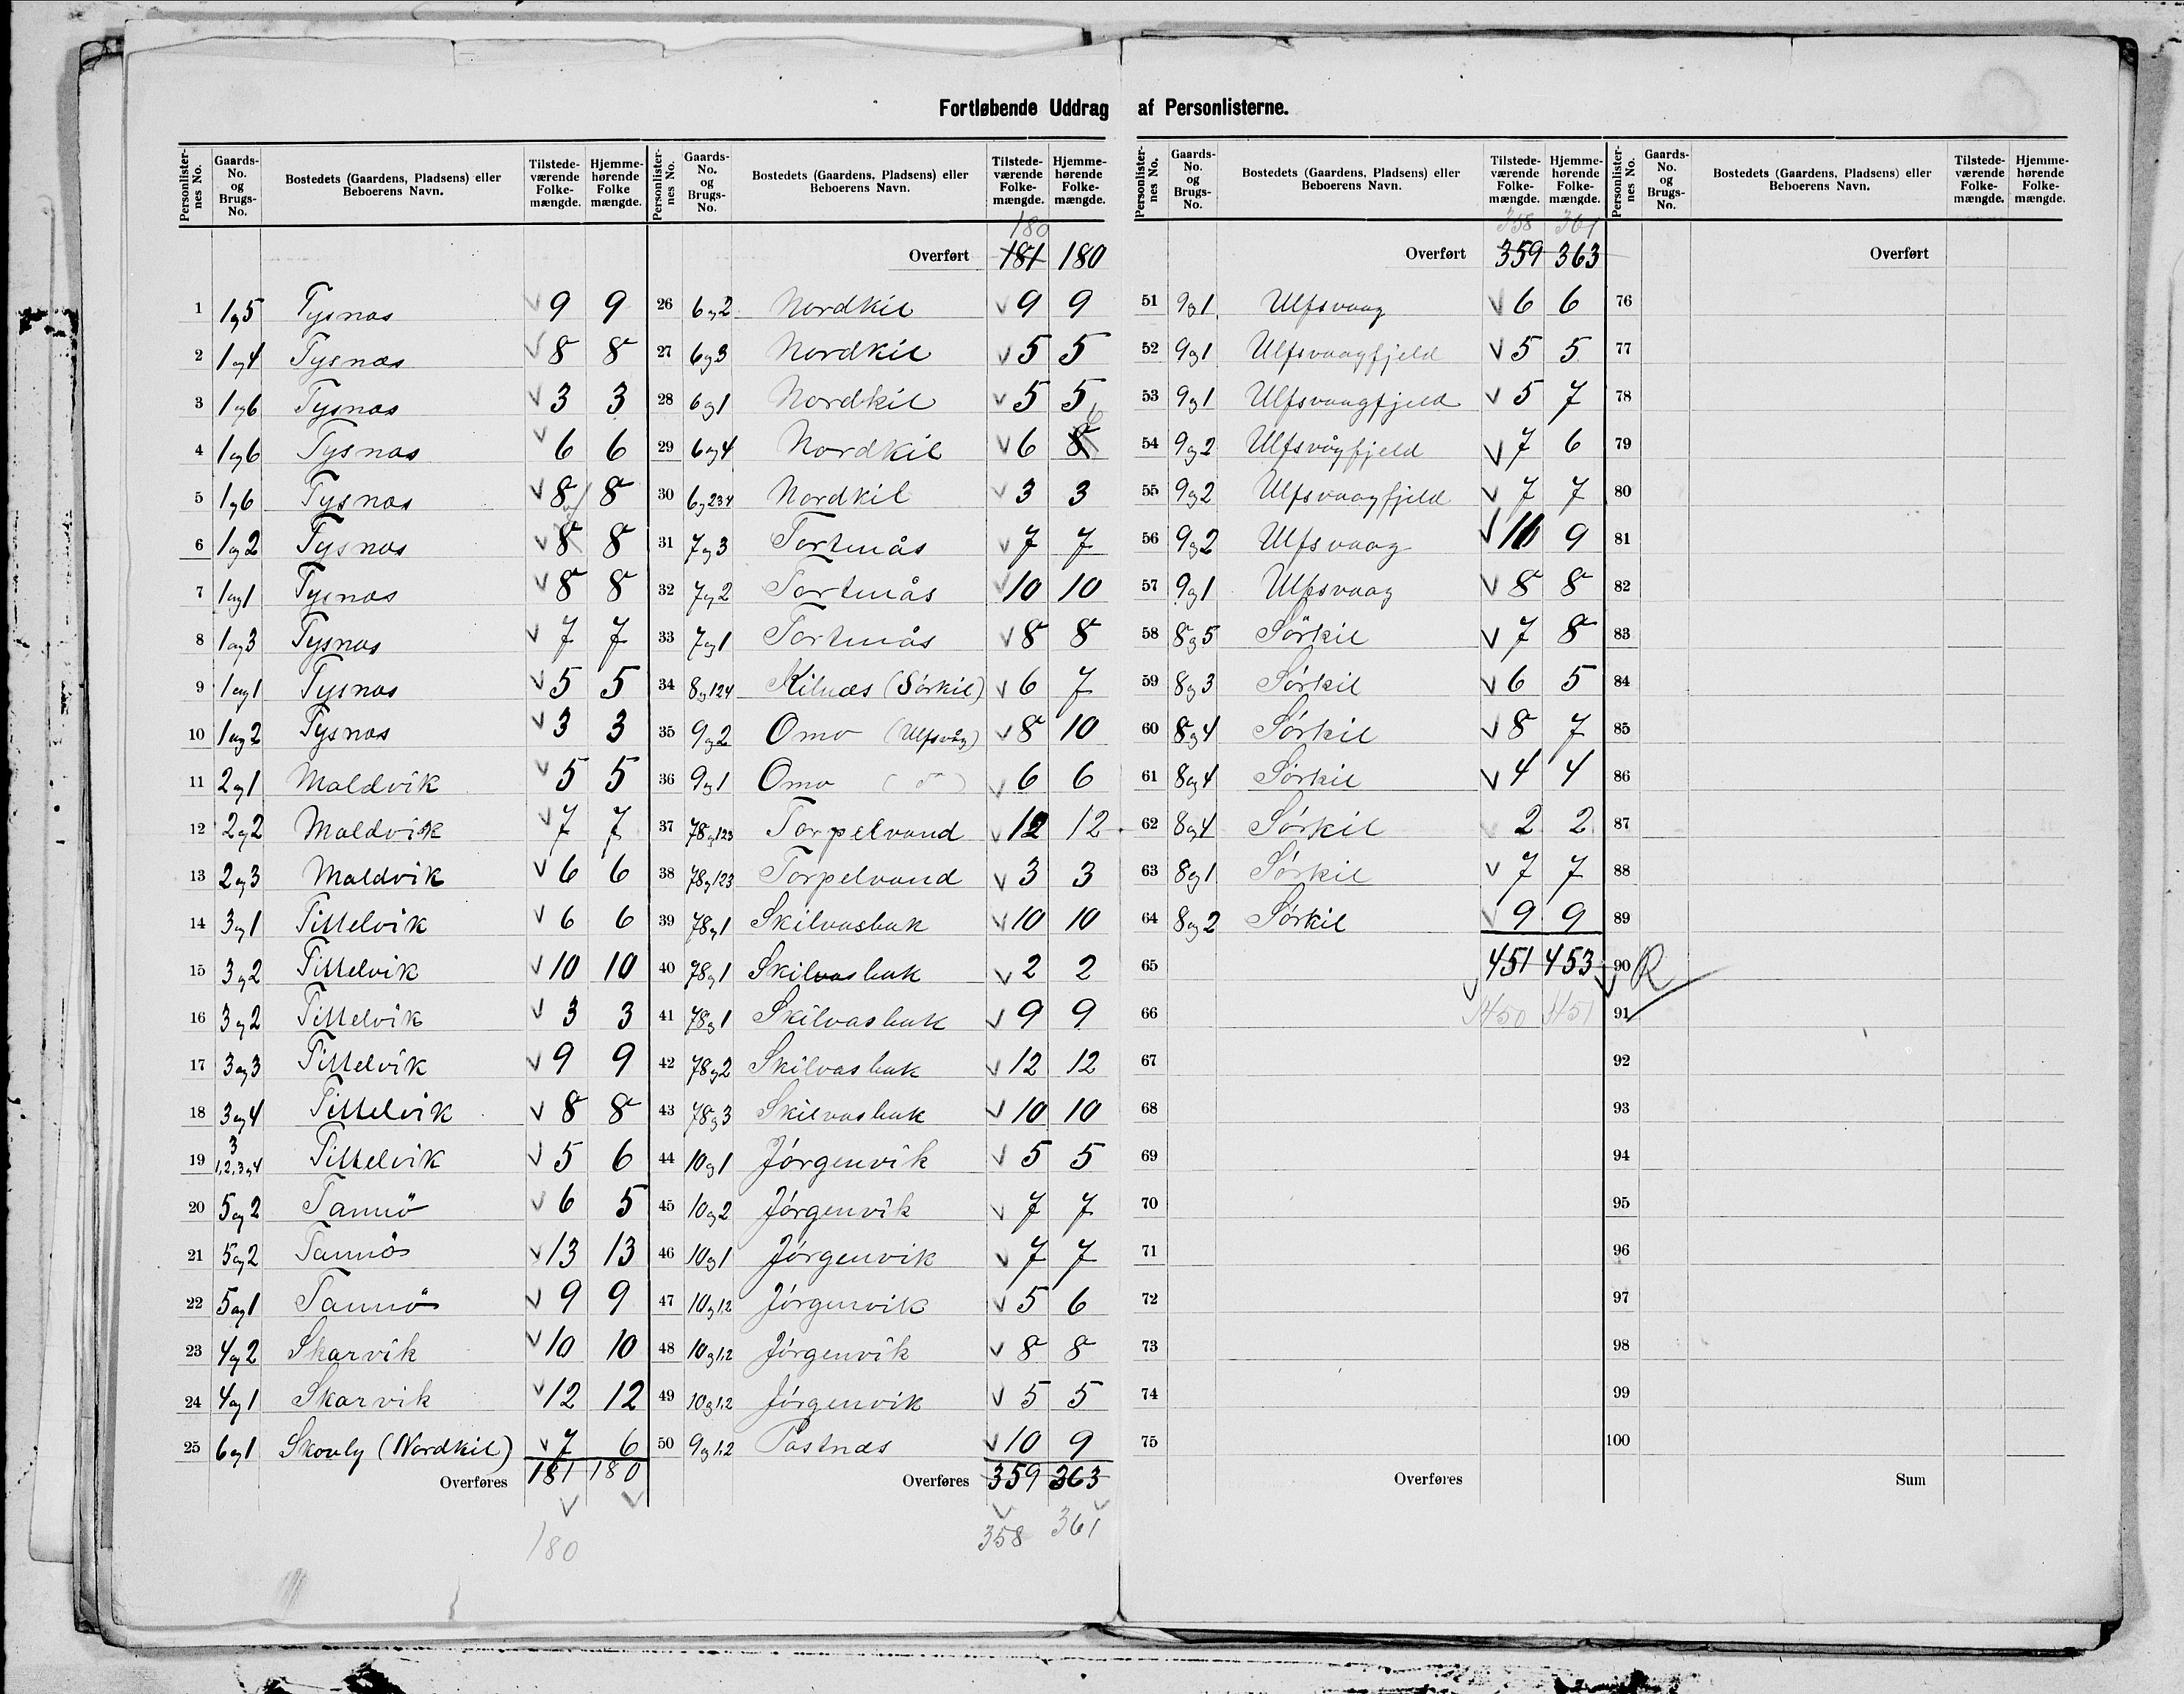 Fortløbende Uddrag af Personlisterne.
Personlister-nes No. Gaards-No. og Brugs-No. Bostedets (Gaardens, Pladsens) eller Beboerens Navn. Tilstede-værende Folke-mængde. Hjemme-hørende Folke mængde.
1 1 og 5 Tysnas 9 9
2 1 og 4 Tysnas 8 8
3 1 og 6 Tysnas 3 3
4 1 og 6 Tysnas 6 6
5 1 og 6 Tysnas 8 8
6 1 og 2 Tysnas 8 8
7 1 og 1 Tysnas 8 8
8 1 og 3 Tysnas 7 7
9 1 og 1 Tysnas 5 5
10 1 og 2 Tysnas 3 3
11 2 og 1 Maldvik 5 5
12 2 og 2 Maldvik 7 7
13 2 og 3 Maldvik 6 6
14 3 og 1 Tittelvik 6 6
15 3 og 2 Tittelvik 10 10
16 3 og 2 Tittelvik 3 3
17 3 og 3 Tittelvik 9 9
18 3 og 4 Tittelvik 8 8
19 3 1,2,3 og 4 Tittelvik 5 6
20 5 og 2 Tannö 6 5
21 5 og 2 Tannö 13 13
22 5 og 1 Tannö 9 9
23 4 og 2 Skarvik 10 10
24 4 og 1 Skarvik 12 12
25 6 og 1 Skouly (Nordkil) 7 6
Overføres 181 180
180
Personlister-nes No. Gaards-No. og Brugs-No. Bostedets (Gaardens, Pladsens) eller Beboerens Navn. Tilstede-værende Folke-mængde. Hjemme-hørende Folke-mængde.
180
Overført 181 180
26 6 og 2 Nordkil 9 9
27 6 og 3 Nordkil 5 5
28 6 og 1 Nordkil 5 5
29 6 og 4 Nordkil 6 8 6
30 6 og 234 Nordkil 3 3
31 7 og 3 Tortnås 7 7
32 7 og 2 Tortnås 10 10
33 7 og 1 Tortnås 8 8
34 8 og 124 Kilnæs (Sørkil) 6 7
35 9 og 2 Omo (Ulfsvåg) 8 10
36 9 og 1 Omo (do) 6 6
37 78 og 123 Torpelvand 12 12
38 78 og 123 Torpelvand 3 3
39 78 og 1 Skilvasbak 10 10
40 78 og 1 Skilvasbak 2 2
41 78 og 1 Skilvasbak 9 9
42 78 og 2 Skilvasbak 12 12
43 78 og 3 Skilvasbak 10 10
44 10 og 1 Jørgenvik 5 5
45 10 og 2 Jørgenvik 7 7
46 10 og 1 Jørgenvik 7 7
47 10 og 1.2 Jørgenvik 5 6
48 10 og 1.2 Jørgenvik 8 8
49 10 og 1.2 Jørgenvik 5 5
50 9 og 1.2 Pastnæs 10 9
Overføres 359 363
358 361
Personlister-nes No. Gaards-No. og Brugs-No. Bostedets (Gaardens, Pladsens) eller Beboerens Navn. Tilstede-værende Folke-mængde. Hjemme-hørende Folke-mængde.
358 361
Overført 359 363
51 9 og 1 Ulfsvaag 6 6
52 9 og 1 Ulfsvaagfjeld 5 5
53 9 og 1 Ulfsvaagfjeld 5 7
54 9 og 2 Ulfsvågfjeld 7 6
55 9 og 2 Ulfsvaagfjeld 7 7
56 9 og 2 Ulfsvaag 10 9
57 9 og 1 Ulfsvaag 8 8
58 8 og 5 Sörkil 7 8
59 8 og 3 Sørkil 6 5
60 8 og 4 Sørkil 8 7
61 8 og 4 Sørkil 4 4
62 8 og 4 Sørkil 2 2
63 8 og 1 Sørkil 7 7
64 8 og 2 Sørkil 9 9
65 451 453
66 450 451
67
68
69
70
71
72
73
74
75
Overføres
Personlister-nes No. Gaards-No. og Brugs-No. Bostedets (Gaardens, Pladsens) eller Beboerens Navn. Tilstede-værende Folke-mængde. Hjemme-hørende Folke-mængde.
Overført
76
77
78
79
80
81
82
83
84
85
86
87
88
89
90 R
91
92
93
94
95
96
97
98
99
100
Sum